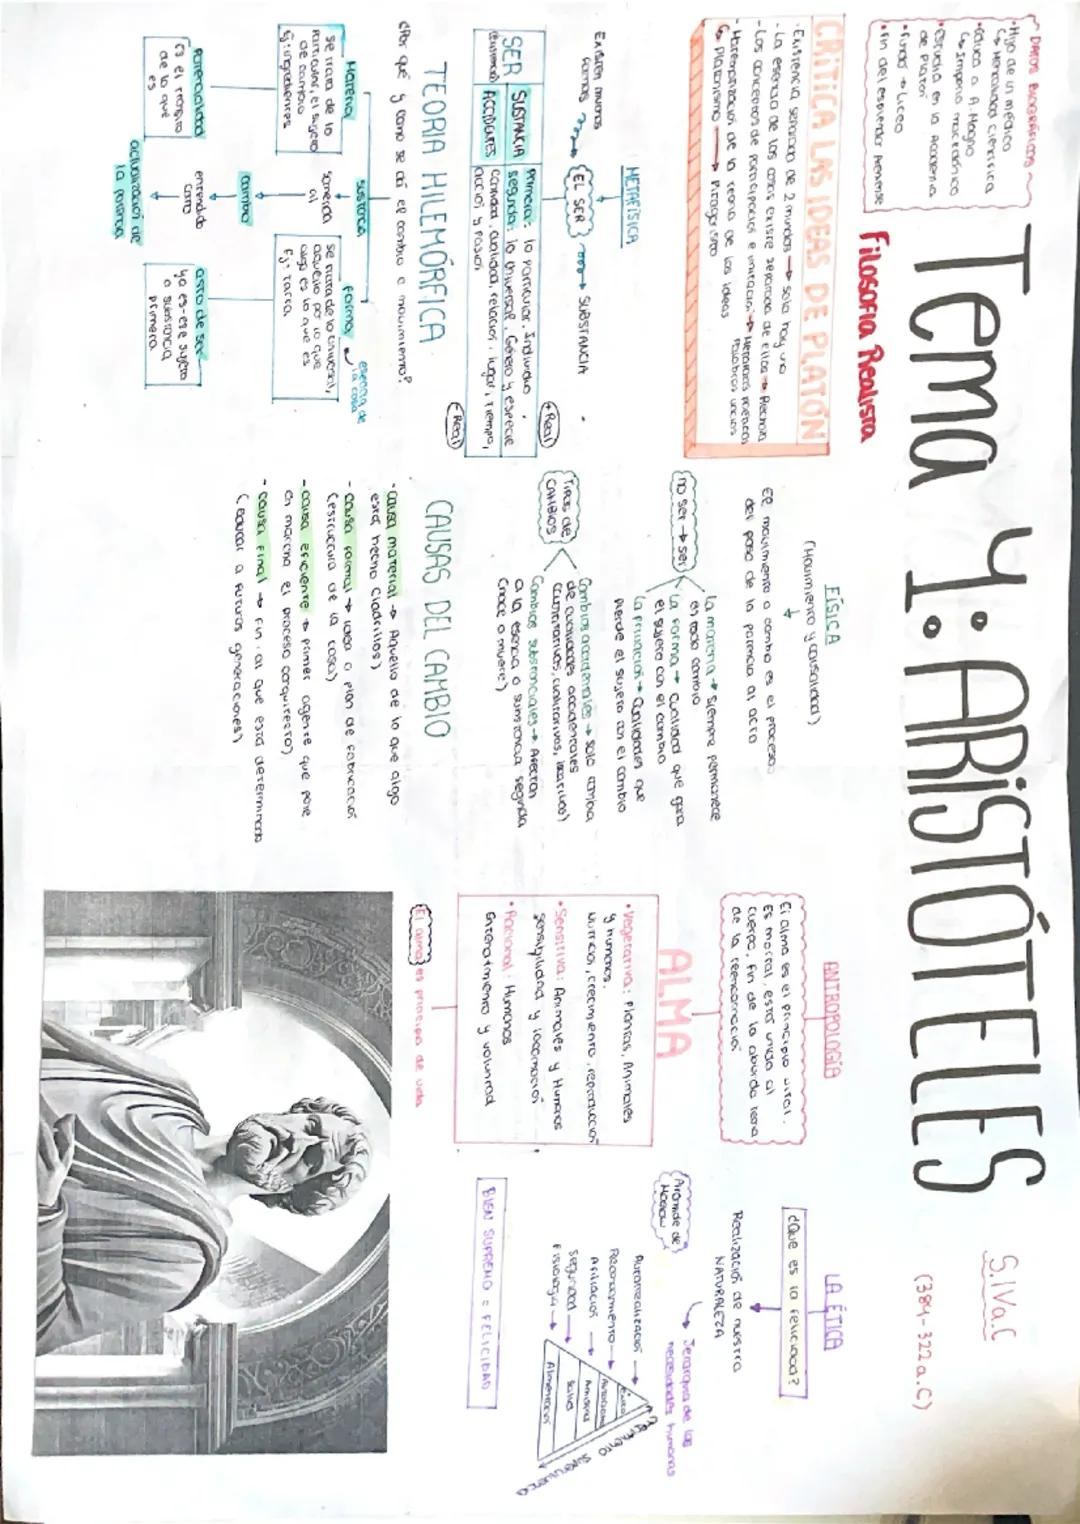 Tema 4: ARISTÓTELES
S.IVa.C
(384-322 a.C)
DATOS BIOGRÁFICOS
• Hijo de un médico
↳ Mentalidad científica
• Educa a A. Magno
↳ Imperio macedónico
• Estudia en la Academia
de Platón
• Fundó → Liceo
• Fin del esplendor Ateniense
Filosofía Realista
CRÍTICA LAS IDEAS DE PLATÓN
- Existencia separada de 2 mundos → solo hay uno
- La esencia de las cosas existe separada de ellas → Rechaza
- Los conceptos de participación e imitación → Metáforas poéticas
Palabras vacías
- Matematización de la teoría de las ideas
↳ Platonismo → Pitagorismo
METAFÍSICA
Existen muchas
formas
EL SER
SUBSTANCIA
SER
SUSTANCIA
ACCIDENTES
primera: lo particular. Individuo
segunda: lo universal. Género y especie
cantidad, cualidad, relación, lugar, tiempo,
acción y pasión
+ Real
- Real
TEORIA HILEMÓRFICA
¿Por qué y como se da el cambio o movimiento?
sustancia
Materia
Forma
esencia de
la cosa
Se trata de lo
particular, el sujeto
de cambio
Ej: ingredientes
Sometida
al
cambio
entendido
como
actualización de
la potencia
Se trata de lo universal,
aquello por lo que
algo es lo que es
Ej: tarta
Potencialidad
Es el proyecto
de lo que
es
acto de ser
ya es-ese sujeto
o substancia
primera
FÍSICA
(Movimiento y causalidad)
El movimiento o cambio es el proceso
del paso de la potencia al acto
no ser → ser
La materia → Siempre permanece
en todo cambio
La forma → Cualidad que gana
el sujeto con el cambio
La privación → Cualidades que
pierde el sujeto con el cambio
TIPOS DE
CAMBIOS
Cambios accidentales → solo cambia
de cualidades accidentales
(cuantitativos, cualitativos, locativos)
Cambios substanciales → Afectan
a la esencia o sustancia segunda
(nace o muere)
CAUSAS DEL CAMBIO
- causa material → Aquello de lo que algo
está hecho (ladrillos)
- causa formal → idea o plan de fabricación
(estructura de la cosa)
- causa eficiente → primer agente que pone
en marcha el proceso (arquitecto)
- causa final → fin al que está determinado
(educar a futuras generaciones)
ANTROPOLOGÍA
El alma es el principio vital.
Es mortal, está unida al
cuerpo, fin de la absurda teoría
de la reencarnación
ALMA
• Vegetativa: Plantas, Animales
y humanos.
Nutrición, crecimiento, reproducción
• Sensitiva: Animales y Humanos
Sensibilidad y locomoción
• Racional: Humanos
Entendimiento y voluntad
El alma es principio de vida
LA ÉTICA
¿Que es la felicidad?
Realización de nuestra
NATURALEZA
Pirámide de
Maslow
Jerarquía de las
necesidades humanas
Autorrealización
Reconocimiento
Afiliación
Seguridad
Fisiología
Éxito
Amistad
Salud
Alimentación
supervivencia
BIEN SUPREMO = FELICIDAD